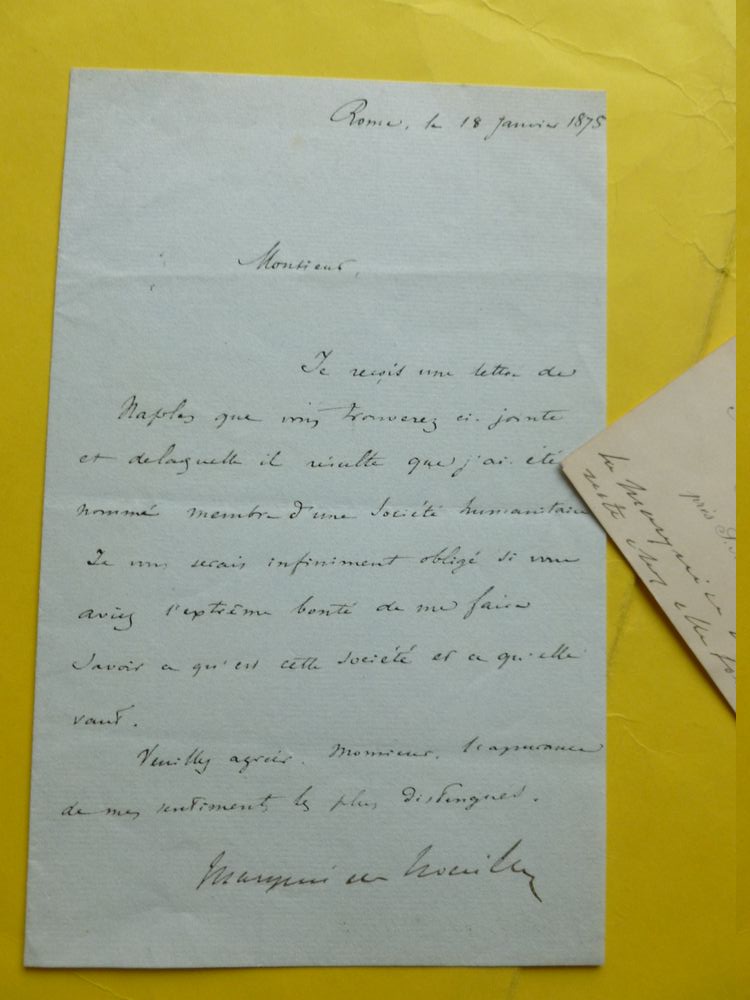 Rome, le 18 Janvier 1875
Monsieur,
Je reçois une lettre de
Naples que vous trouverez ci-jointe
et de laquelle il résulte que j'ai été
nommé membre d'une Société humanitaire
Je vous serais infiniment obligé si vous
aviez l'extrême bonté de me faire
Savoir ce qu'est cette Société et ce qu'elle
vaut.
Veuillez agréer, Monsieur, l'assurance
de mes sentiments les plus distingués.
Marquis de Noailles
près
la Marquise